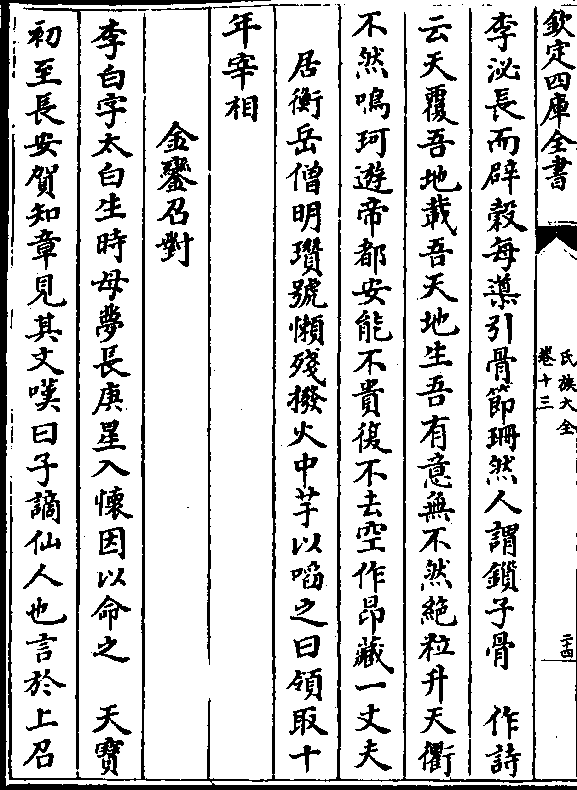 欽定四庫全書
氏族大全
卷十三
二十四
李泌長而辟穀每導引骨節珊然人謂鎖子骨　作詩
云天覆吾地載吾天地生吾有意無不然絶粒升天衢
不然鳴珂遊帝都安能不貴復不去空作昂藏一丈夫
居衡岳僧明瓚號懶殘撥火中芋以啗之曰領取十
年宰相
金鑾召對
李白字太白生時母夢長庚星入懷因以命之　天寳
初至長安賀知章見其文嘆曰子謫仙人也言於上召